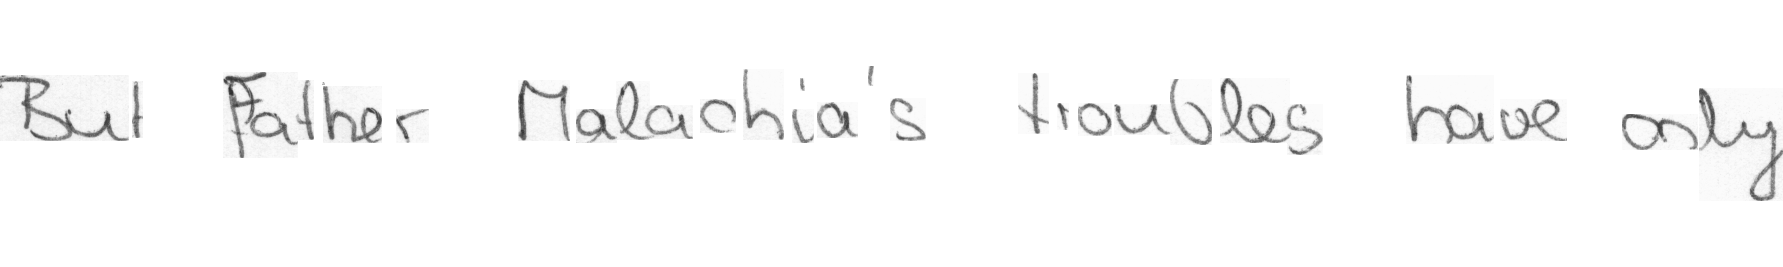 But Father Malachia's troubles have only